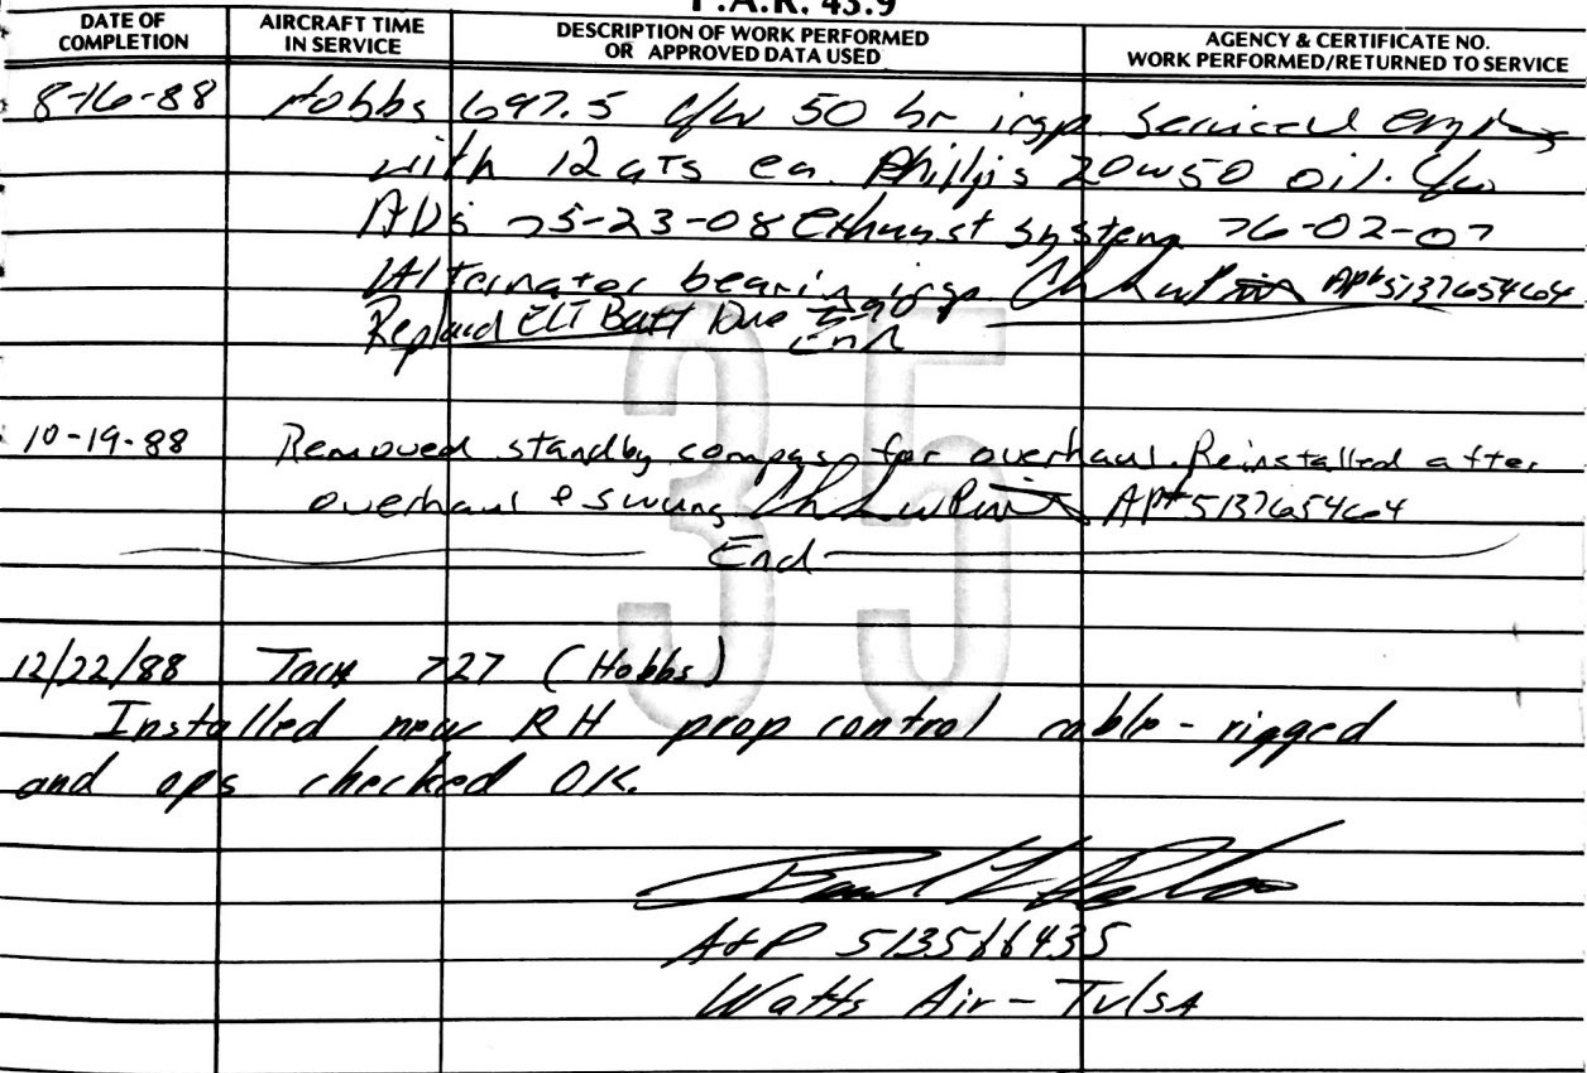 F.A.R. 43.9
DATE OF COMPLETION AIRCRAFT TIME IN SERVICE DESCRIPTION OF WORK PERFORMED OR APPROVED DATA USED AGENCY & CERTIFICATE NO. WORK PERFORMED/RETURNED TO SERVICE
8-16-88 Hobbs 697.5 c/w 50 hr insp. Serviced
with 12 QTS ea. Phillips 20W50 oil. c/w
ADs 75-23-08 Exhaust system 76-02-07
Alternator bearing insp. AP# 513765464
Replaced ELT Batt Due
End
35
10-19-88 Removed standby compass for overhaul. Reinstalled after
overhaul & swung AP# 513765464
End
12/22/88 Tach 727 (Hobbs)
Installed new RH prop control cable - rigged
and ops checked OK.
A&P 513566435
Watts Air - Tulsa